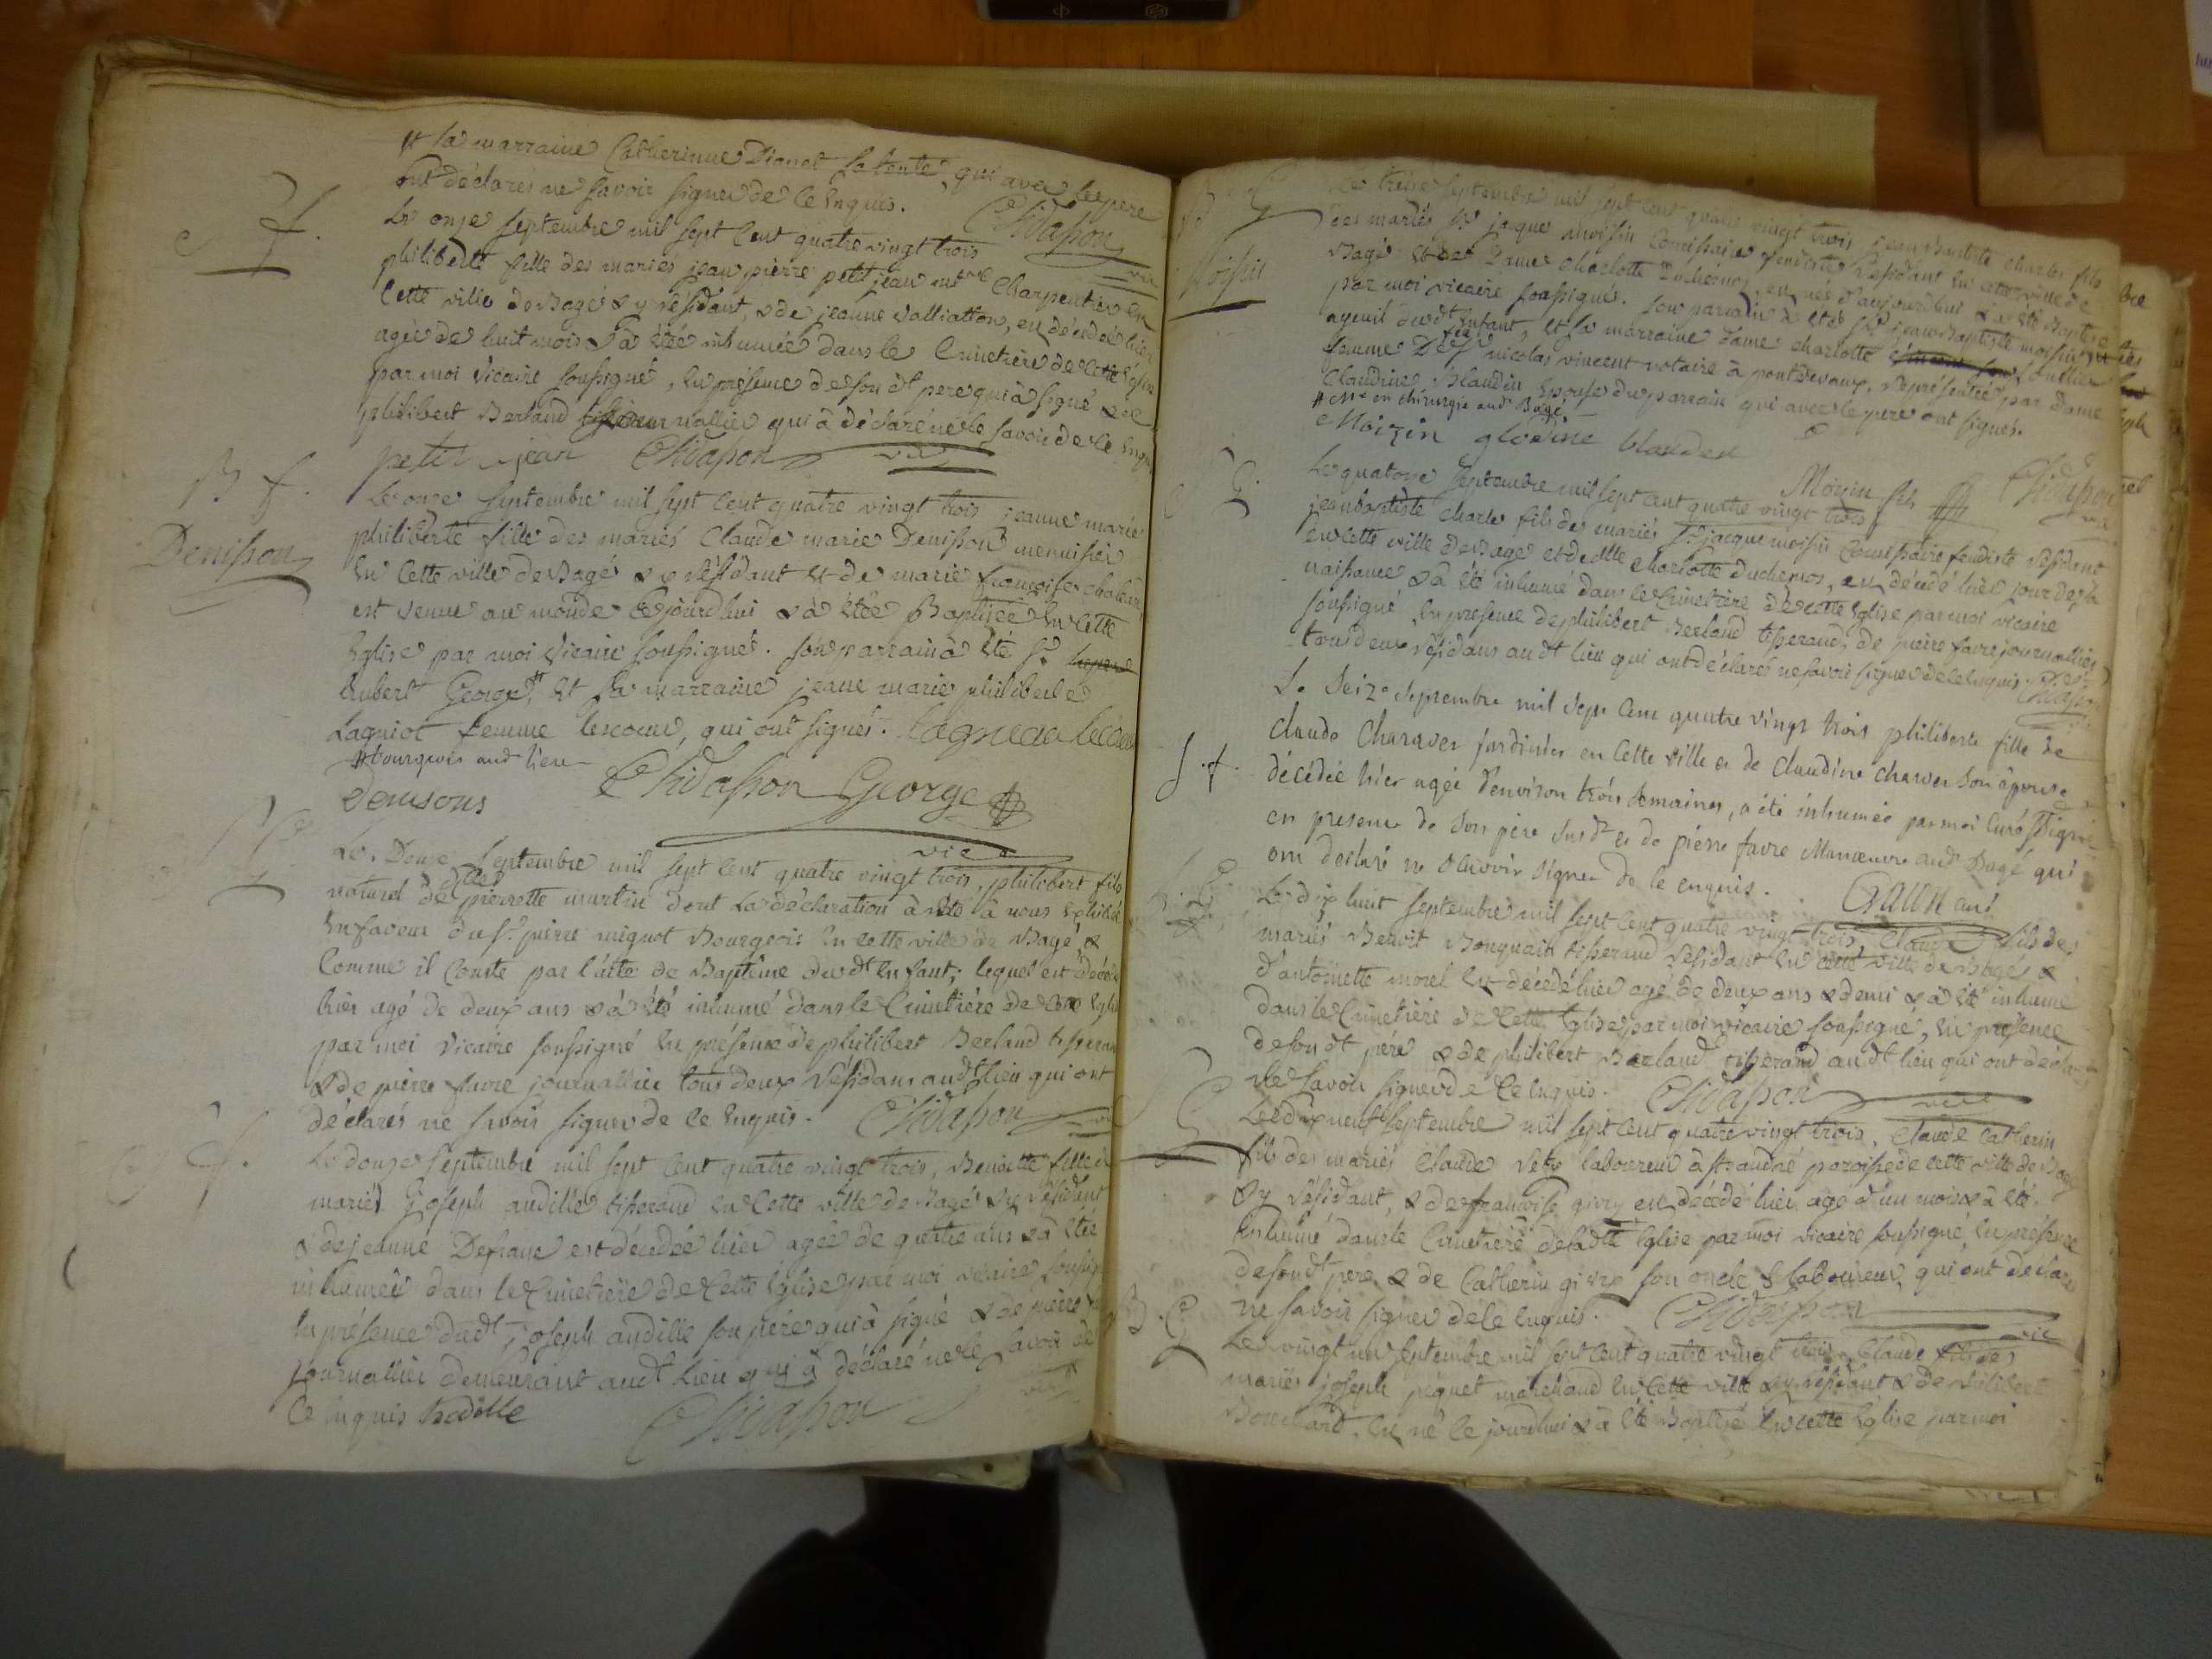 # la marraine Catherinne Dianet sa tente, qui avec le pere
ont déclarés ne savoir signer de ce enquis. Chidapon vic
S f.
Le onze septembre mil sept cent quatre vingt trois
philiberte fille des mariés jean pierre petit jean mtre charpentier en
cette ville de Bagé & y résidant, & de jeanne Valliatton, en décédée hier
agée de huit mois & a été inhumée dans le Cimetière de cette église
par moi Vicaire soussigné, en présence de son dt pere qui à signé & de
philibert Berland journallier qui à déclaré ne le savoir de ce enquis
petit jean Chidapon vic
B f.
Denisson
Le onze septembre mil sept cent quatre vingt trois jeanne marie
philiberte fille des mariés Claude marie Denisson menuisier
en cette ville de Bagé & y résidant et de marie françoise
est venue au monde ce jourdhui & à étée Baptisée en cette
Eglise par moi Vicaire soussigné. son parrain à été Sr
hubert George # et sa marraine jeanne marie philiberte
Lagniot femme lescoeur, qui ont signés.
# bourgeois audt lieu
Denisons Chidapon George
vic
Le Douze septembre mil sept cent quatre vingt trois, philibert fils
naturel de dlle pierrette martin dont la déclaration à été à nous exhibée
en faveur du Sr. pierre mignot Bourgeois en cette ville de Bagé, &
Comme il conste par l'acte de Baptême dudt enfant; lequel est décédé
hier agé de deux ans & à été inhumé dans le Cimetière de cette Eglise
par moi Vicaire soussigné en présence de philibert Berland tisserand
& de pierre favre journallier tous deux résidans audt lieu qui ont
déclarés ne savoir signer de ce enquis. Chidapon vic
S f.
Le douze septembre mil sept cent quatre vingt trois, Benoitte fille des
mariés Joseph audille tisserand en cette ville de Bagé & y résidant
& de jeanne Defrane est décédée hier agée de quatre ans & à été
inhumée dans le Cimetière de cette Eglise par moi vicaire soussigné
en présence dudt joseph audille son père qui à signé & de pierre
journallier demeurant audt lieu qui à déclaré ne le savoir de
ce enquis hodille Chidapon vic
B. G
Moissin
Le treize septembre mil sept cent quatre vingt trois jean Baptiste charles fils
des mariés Sr jaque moissin Comissaire feudiste résidant en cette ville de
Bagé et de Dame charlotte Duchemos, en né d'aujourdhui & a été Baptisé
par moi vicaire soussigné. son parrain à été Sr jean Baptiste moissin #
ayeuil dudt enfant, et sa marraine Dame charlotte
femme De feu Sr nicolas vincent notaire à pontdevaux, représentée par Dame
Claudine Blandin Epouse du parrain qui avec le pere ont signés.
# Mtre en chirurgie audt Bagé
Moizin glodine blanden
Moizin fils Chidapon vic
S G.
Le quatorze septembre mil sept cent quatre vingt trois
jeanbaptiste charles fils des mariés Sr jacque moissin Comissaire feudiste résidant
en cette ville de Bagé et de dlle charlotte duchemos, en décédé hier jour de sa
naissance & à été inhumé dans le Cimetière de cette Eglise par moi vicaire
soussigné en présence de philibert Berland tisserand, de pierre favre journallier
tous deux résidans audt lieu qui ont déclarés ne savoir signer de ce enquis. Chidapon
S. f.
Le Seize Septembre mil Sept Cent quatre vingt trois philiberte fille de
Claude Charaver Jardinier en Cette Ville et de Claudine Charver Son épouse
décédée hier agée d'environ trois Semaines, a été inhumée par moi Curé Soussigné
en presence de Son père Susdt et de pierre favre Manoeuvre audt Bagé qui
ont déclaré ne Scavoir Signer de ce enquis. curé
S. G.
Le dix huit septembre mil sept cent quatre vingt trois, Claude fils des
mariés Benoit Bonguain tisserand résidant en cette ville de Bagé &
d'antoinette morel en décédé hier agé de deux ans & demi & à été inhumé
dans le Cimetière de cette Eglise par moi vicaire soussigné, en présence
de son dt père & de philibert Berland tisserand audt lieu qui ont déclarés
ne savoir signer de ce enquis. Chidapon vic
S G
Le dix neuf septembre mil sept cent quatre vingt trois, Claude Catherin
fils des mariés Claude laboureur à st andré paroisse de cette ville de Bagé
& y résidant, & de françoise givry en décédé hier agé d'un mois & à été
inhumé dans le Cimetière de ladte Eglise par moi vicaire soussigné, en présence
de son dt pere & de Catherin givry son oncle & laboureur, qui ont déclarés
ne savoir signer de ce enquis. Chidapon vic
B. G
Le vingt un septembre mil sept cent quatre vingt trois, Claude fils des
mariés joseph piquet marchand en cette ville & y résidant & de philiberte
Bouchard, en né ce jourdhui & à été Baptisé en cette Eglise par moi